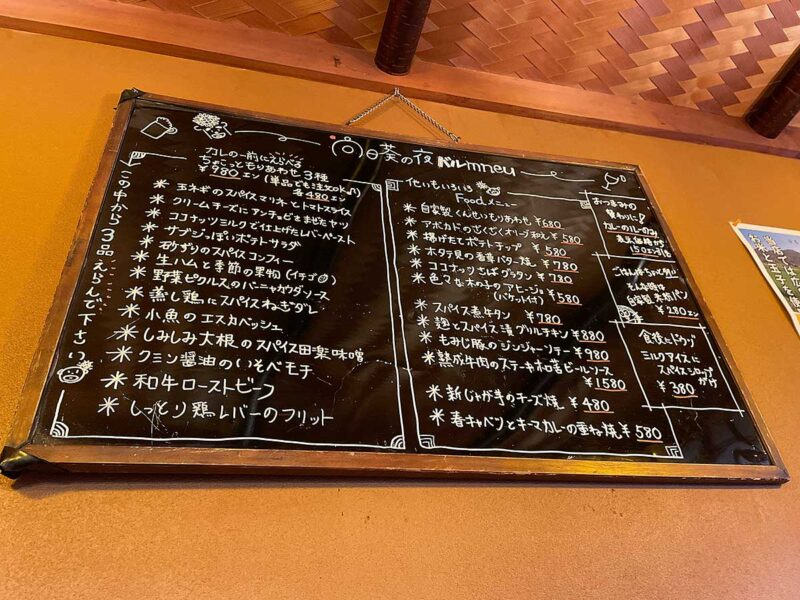 葵の夜 menu
カレーの前にえらべる
ちょこっともりあわせ3種
¥980エン(単品でも注文OK!)
各480エン
この中から3品えらんで下さい
玉ネギのスパイスマリネとトマトスライス
クリームチーズにアンチョビをまぜたヤツ
ココナッツミルクで仕上げたレバーペースト
サブジっぽいポテトサラダ
砂ずりのスパイスコンフィー
生ハムと季節の果物(イチゴ)
野菜ピクルスのバーニャカウダソース
蒸し鶏にスパイスねぎダレ
小魚のエスカベッシュ
しみしみ大根のスパイス田楽味噌
クミン醤油のいそべモチ
和牛ローストビーフ
しっとり鶏レバーのフリット
他いろいろ
Foodメニュー
自家製くんせいもりあわせ ¥680
アボカドのざくざくオリーブ和え ¥580
揚げたてポテトチップ ¥580
ホタテ貝の香草バター焼 ¥780
ココナッツさばグラタン ¥730
色々な木の子のアヒージョ
(バケット付) ¥580
スパイス煮牛タン ¥780
麹とスパイス漬グリルチキン ¥880
もみじ豚のジンジャーソテー ¥980
熟成牛肉のステーキ和香ビールソース
¥1580
新じゃが芋のチーズ焼 ¥480
春キャベツとキーマカレーの重ね焼 ¥580
おつまみの
替わりに!
カレーのルーのみ
表示価格から
150エン引き
ごはん
自家製
パン
¥280エン
食後にドウゾ
ミルクアイスに
スパイスシロップ
がけ
¥380